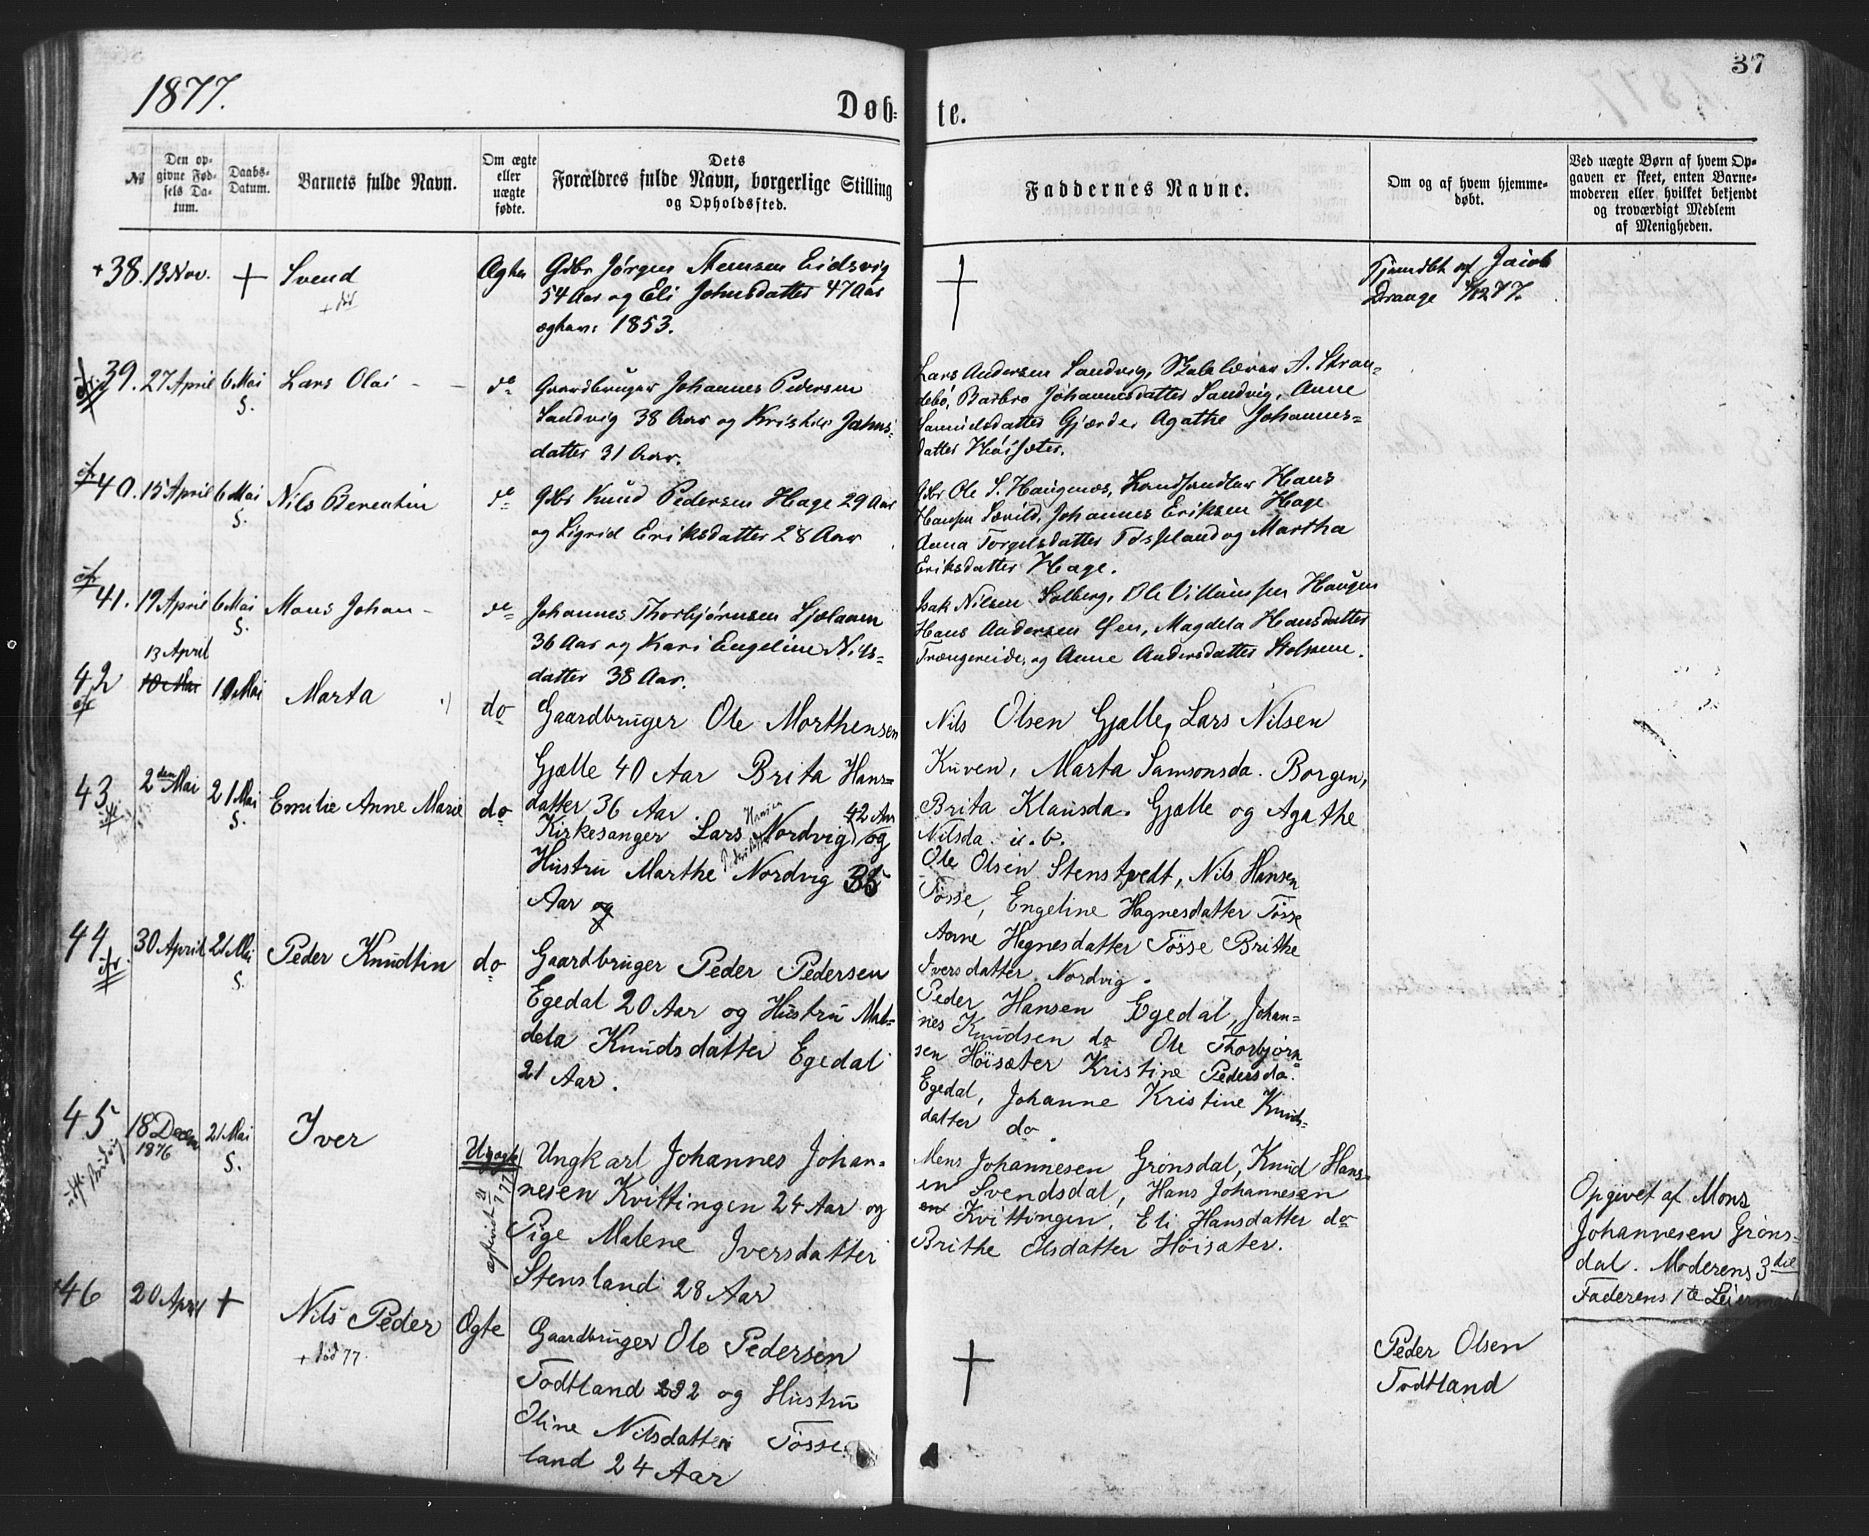 1877.
37
Døb-
te.
№
Den op-
givne Fød-
sels Da-
tum.
Daabs-
Datum.
Barnets fulde Navn.
Om ægte
eller
uægte
fødte.
Dets
Forældres fulde Navn, borgerlige Stilling
og Opholdssted.
Faddernes Navne.
Om og af hvem hjemme-
døbt.
Ved uægte Børn af hvem Op-
gaven er skeet, enten Barne-
moderen eller hvilket bekjendt
og troværdigt Medlem
af Menigheden.
+38. 13 Nov. + Svend
Ægte
Gdbr Jørgen Eidsvig
54 Aar og Eli Johnsdatter 47 Aar
1853.
†
af Jacob
Drange 4/12 77.
39. 27 April 6 Mai
S.
Lars Olai - -
do
Gaardbruger Johannes Pedersen
Sandvig 38 Aar og Johns-
datter 31 Aar.
Lars Andersen Sandvig, A. Stran-
debö, Barbro Johannesdatter Sandvig, Anne
Samuelsdatter Gjærde, Agathe Johannes-
datter Höisæter.
40. 15 April 6 Mai
S.
Nils Berentin
do
Gdbr Knud Pedersen Hage 29 Aar
og Sigrid Eriksdatter 28 Aar
Gdbr Ole S. Haugenes, Landhandler Hans
Hansen Johannes Eriksen Hage
Anna Torgelsdatter og Martha
Eriksdatter Hage.
41. 19 April 6 Mai
S.
Mons Johan -
do
Johannes Thorbjørnsen
36 Aar og Kari Engeline Nils-
datter 38 Aar.
Isak Nilsen Solberg, Ole Villumsen Haugen
Hans Andersen Øen, Magdela Hansdatter
Trængereide, og Anne Andersdatter Stolpene.
13 April
42 10 Mai 10 Mai
Marta
do
Gaardbruger Ole Morthensen
Gjælle 40 Aar Brita Hans-
datter 36 Aar.
Nils Olsen Gjælle, Lars Nilsen
Kuven, Marta Samsonsda. Borgen,
Brita Klausda. Gjælle og Agathe
Nilsda. i. b.
43 2den Mai 21 Mai
S.
Emilie Anne Marie
do
Kirkesanger Lars Hansen Nordvig 42 Aar og
Hustru Marthe Nordvig 35
Aar og
Ole Olsen Stenstvedt, Nils Hansen
Tösse, Engeline Hagnesdatter Tösse
Anne Hegnesdatter Tösse Brithe
Iversdatter Nordvig.
44 30 April 21 Mai
S.
Peder Knudtin
do
Gaardbruger Peder Pedersen
Egedal 20 Aar og Hustru Mal-
dela Knudsdatter Egedal
21 Aar.
Peder Hansen Egedal, Johan-
nes Knudsen do Ole Thorbjørn-
sen Höisæter Kristine Pedersda.
Egedal, Johanne Kristine Knuds-
datter do.
45 18 Decem
1876
21 Mai
S.
Iver
Uægte
Ungkarl Johannes Johan-
nesen Kvittingen 24 Aar og
Pige Malene Iversdatter
Stensland 28 Aar
Mons Johannesen Grönsdal, Knud Hans-
en Svendsdal, Hans Johannesen
en Kvittingen, Eli Hansdatter do
Brithe Olsdatter Höisæter.
Opgivet af Mons
Johannesen Gröns-
dal. Moderens 3die
Faderens 1te
46 20 April +
Nils Peder
+ död 77.
Ægte
Gaardbruger Ole Pedersen
Todtland og Hustru
Oline Nilsdatter Tösse-
land 24 Aar
†
Peder Olsen
Todtland